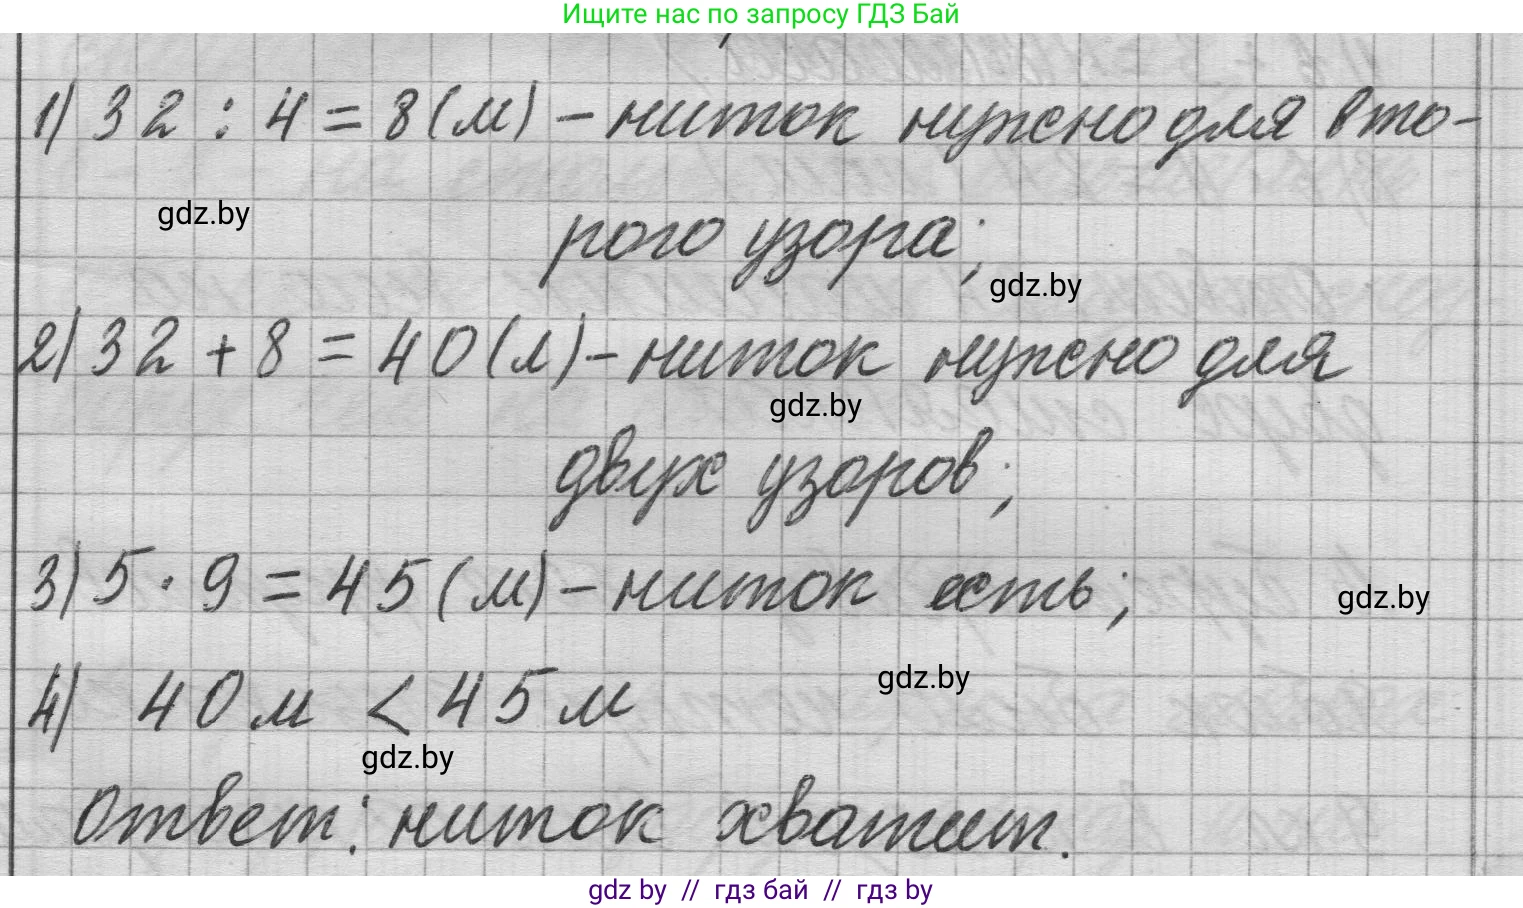 Ищите нас по запросу ГДЗ Бай
1) 32 : 4 = 8 (м) – ниток нужно для вто-
gdz.by
рого узора;
gdz.by
2) 32 + 8 = 40 (м) – ниток нужно для
gdz.by
двух узоров;
3) 5 · 9 = 45 (м) – ниток есть;
gdz.by
4) 40 м < 45 м
gdz.by
gdz.by
Ответ: ниток хватит.
gdz by // гдз бай // гдз by